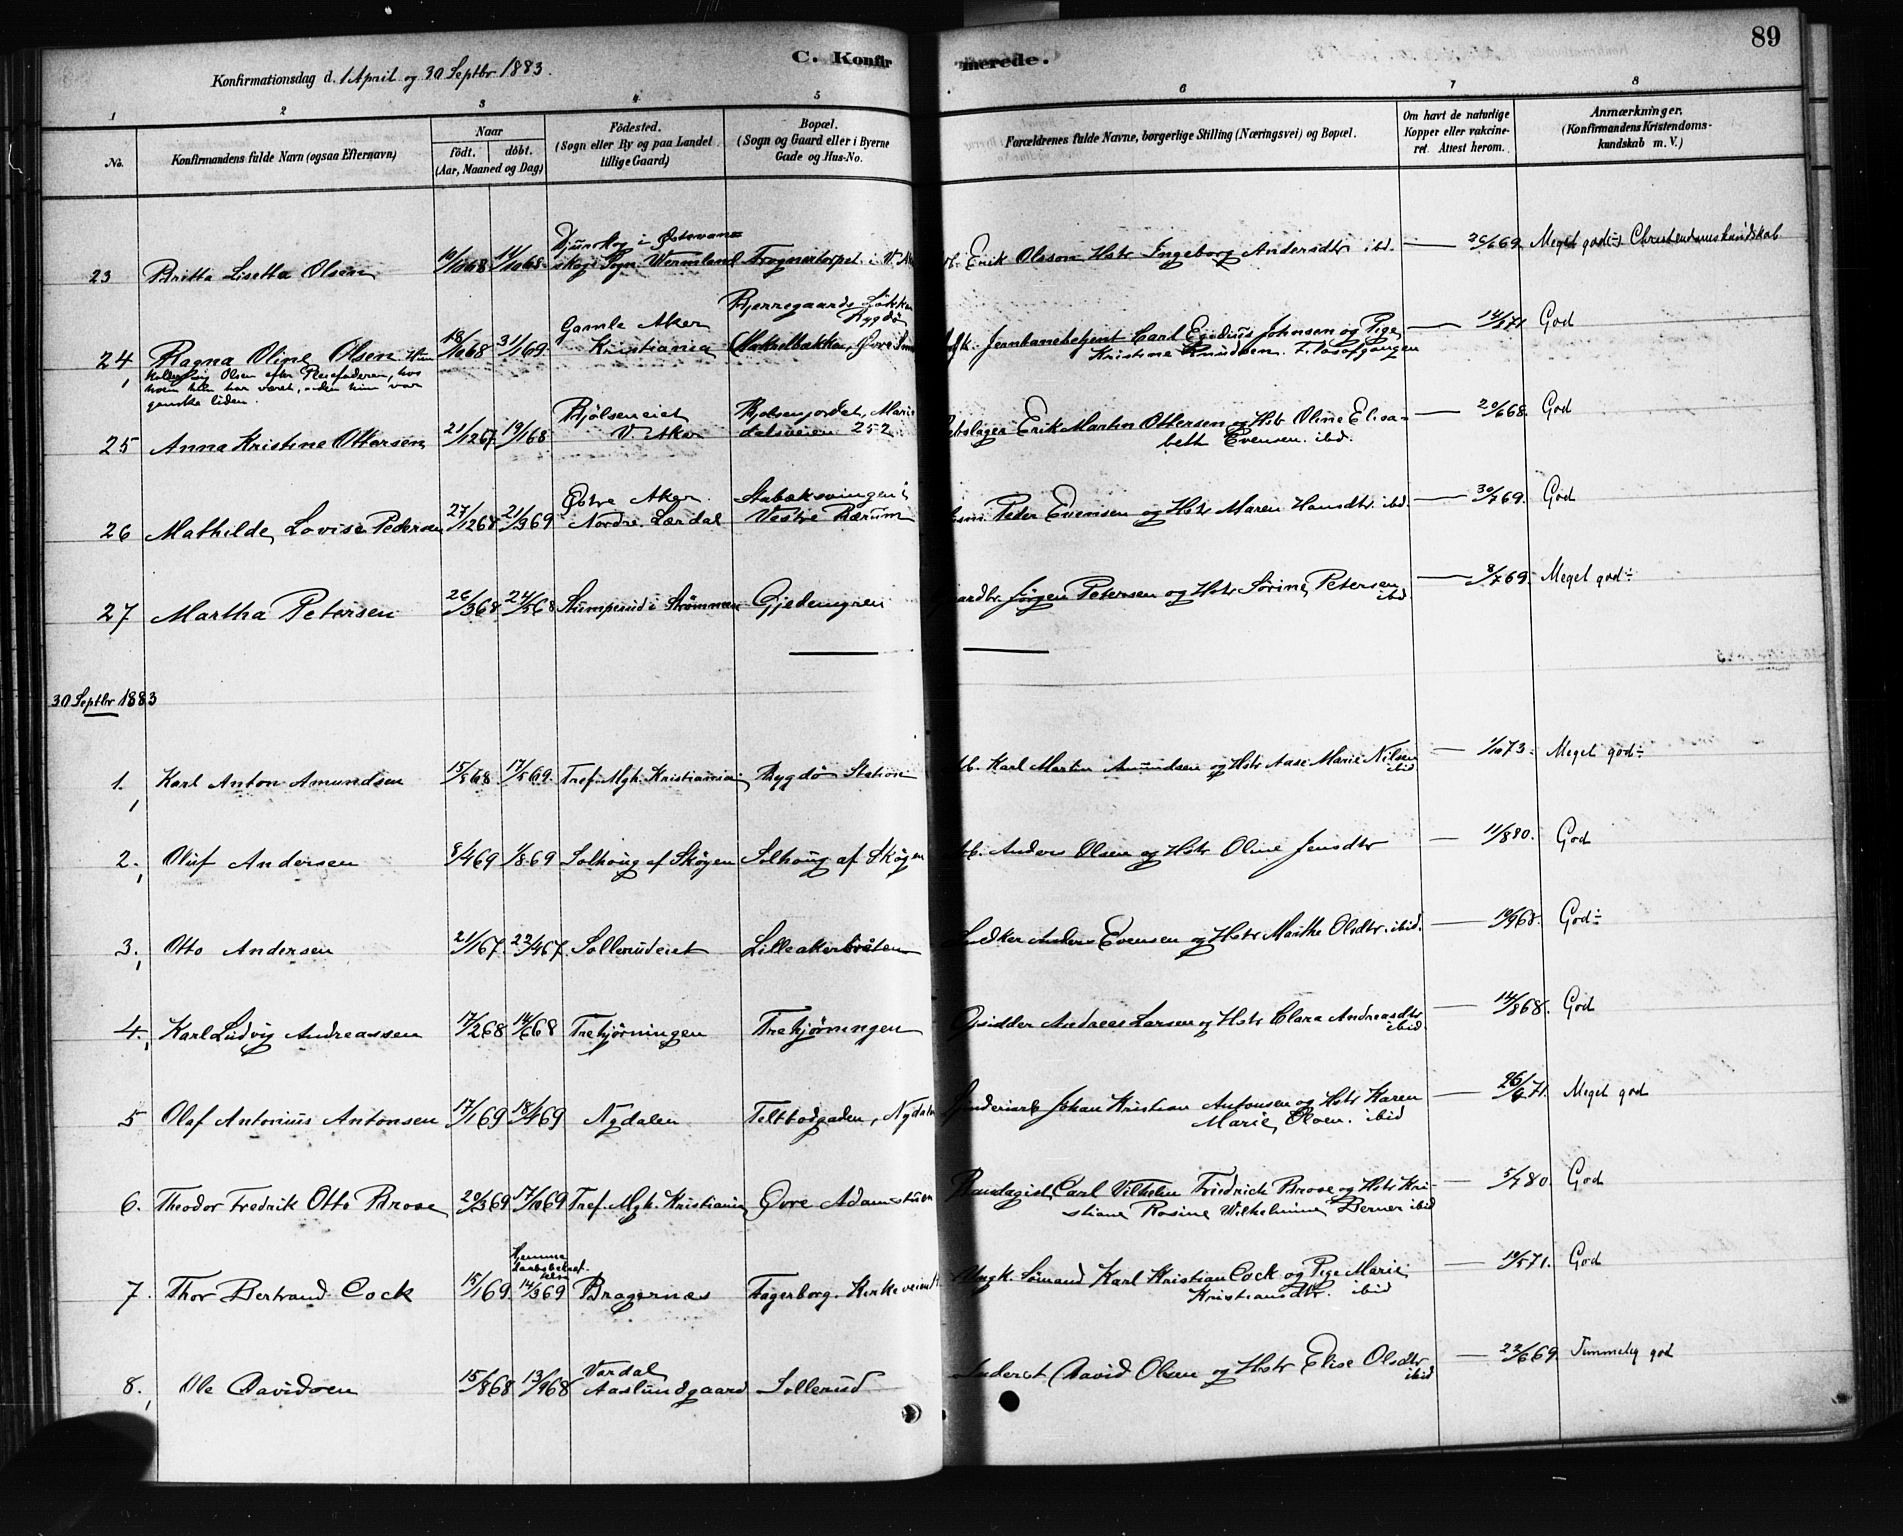 89
C. Konfir merede.
Konfirmationsdag d. 1 April og 30 Septbr 1883.
1 2 3 4 5 6 7 8
No. Konfirmandens fulde Navn (ogsaa Efternavn) Naar født. døbt. (Aar, Maaned og Dag) Fødested. (Sogn eller By og paa Landet tillige Gaard) Bopæl. (Sogn og Gaard eller i Byerne Gade og Hus-No. Forældrenes fulde Navne, borgerlige Stilling (Næringsvei) og Bopæl. Om havt de naturlige Kopper eller vakcineret. Attest herom. Anmærkninger. (Konfirmandens Kristendomskundskab m. V.)
23 Britta Lisetta Olsen 10/10 68 11/10 68 Djunskog i Østervanskog Sogn Wermland Frognertorpet i V. Erik Olsson Hstr Ingeborg Andersdtr ibid. — 69 Meget god÷ Christendomskundskab
24 Ragna Oline Olsen Hun
kalder sig Olsen efter Pleiefaderen, hos
hvem hun har været, siden hun var
ganske liden.
18/10 68 31/1 69 Gamle Aker Kristiania Bjerregaards Løkken Bygdø Jernbanebetjent Carl Egidius Johnsen og Pige
Kristine Knudsen. — 14/7 71 God
25 Anna Kristine Ottersen 21/12 67 19/1 68 Bjølseneiet V. Aker Bjølsenjordet, Maridalsveien 252 Erik Martin Ottersen og Hstr Oline Elisabeth Evensen. ibid. — 20/6 68 God
26 Mathilde Lovise Pedersen 27/12 68 21/3 69 Østre Aker Nordre Lørdal Stabæksvingen i Vestre Bærum Peder Evensen og Hstr Maren Hansdtr. ibid — 30/7 69. God
27 Martha Petersen 26/3 68 24/5 68 Stumperud i Strømmen Gjedemyren Jørgen Petersen og Hstr Sørine Petersen ibid — 8/7 69. Meget god÷
30 Septbr 1883
1. Karl Anton Amundsen 15/8 68 17/5 69. Tref. Mgh. Kristiania Bygdø Station Karl Martin Amundsen og Hstr Aase Marie Nilsen ibid — 1/10 73. Meget god÷
2. Oluf Andersen 8/4 69 1/8 69 Solhoug af Skøyen Solhoug af Skøyen Anders Olsen og Hstr Oline Jensdtr — 11/8 80. God
3. Otto Andersen 21/1 67. 22/4 67. Sollerudeiet Lilleakerbråten Snedker Anders Evensen og Hstr Marthe Olsdtr. ibid. — 10/9 68. God÷
4. Karl Ludvig Andreassen 17/2 68 14/6 68 Trekjørningen Trekjørningen Opsidder Andreas Larsen og Hstr Clara Andreasdtr ibid — 14/8 68. God
5 Olaf Antonius Antonsen 17/1 69 18/4 69 Nydalen Teltbodgaden, Nydalen Johan Kristian Antonsen og Hstr Karen
Marie Olsen. ibid — 26/6 71. Meget god
6. Theodor Fredrik Otto Brose 20/3 69 17/10 69 Tref. Mgh. Kristiania Øvre Adamstuen Bandagist Carl Vilhelm Friedrich Brose og Hstr Kristiane Rosine Wilhelmine Berner ibid — 5/7 80. God
7. Thor Bertrand Cock 15/1 69. Hjemmedaabsbekræftelsen 14/3 69 Bragernæs Fagerborg. Kirkeveien Ungk. Sømand Karl Kristian Cock og Pige Marie
Kristiansdtr. ibid — 19/5 71. God
8. Ole Davidsen 15/8 68 13/9 68 Vardal Aaslundgaard Sollerud David Olsen og Hstr Elise Olsdtr ibid — 22/6 69. Temmelig god